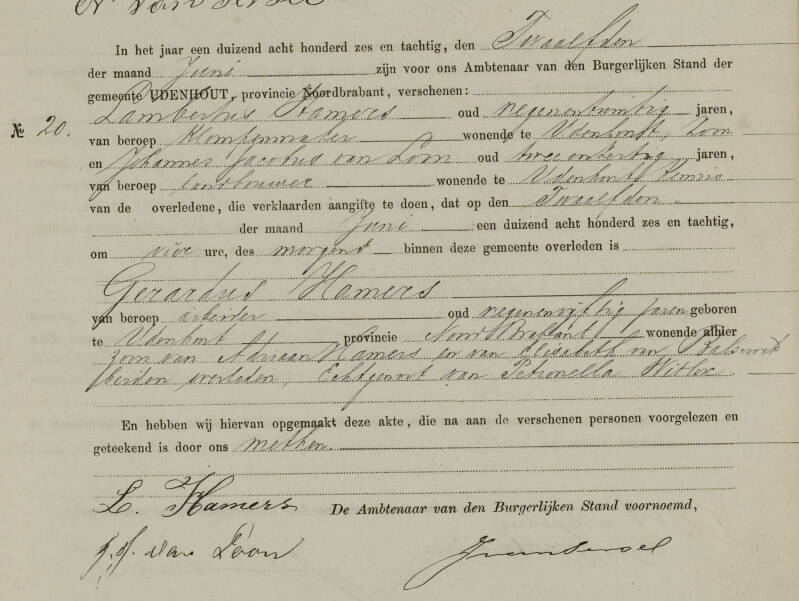 In het jaar een duizend acht honderd zes en tachtig, den Twaalfden
der maand Juni zijn voor ons Ambtenaar van den Burgerlijken Stand der
gemeente UDENHOUT, provincie Noordbrabant, verschenen:
Lambertus Hamers oud negenentwintig jaren,
№ 20.
van beroep Klompenmaker wonende te Udenhout, Zoon
en Johannes Jacobus van Loon oud twee en dertig jaren,
van beroep Landbouwer wonende te Udenhout, Kennis
van de overledene, die verklaarden aangifte te doen, dat op den Twaalfden
der maand Juni een duizend acht honderd zes en tachtig,
om vier ure, des morgens binnen deze gemeente overleden is
Gerardus Hamers
van beroep arbeider oud negenenvijftig jaren geboren
te Udenhout provincie Noord Brabant wonende alhier
zoon van Adriaan Hamers en van Elisabeth van
beiden overleden, Echtgenoot van Petronella Witlox
En hebben wij hiervan opgemaakt deze akte, die na aan de verschenen personen voorgelezen en
geteekend is door ons met hen.
L. Hamers De Ambtenaar van den Burgerlijken Stand voornoemd,
J. J. van Loon